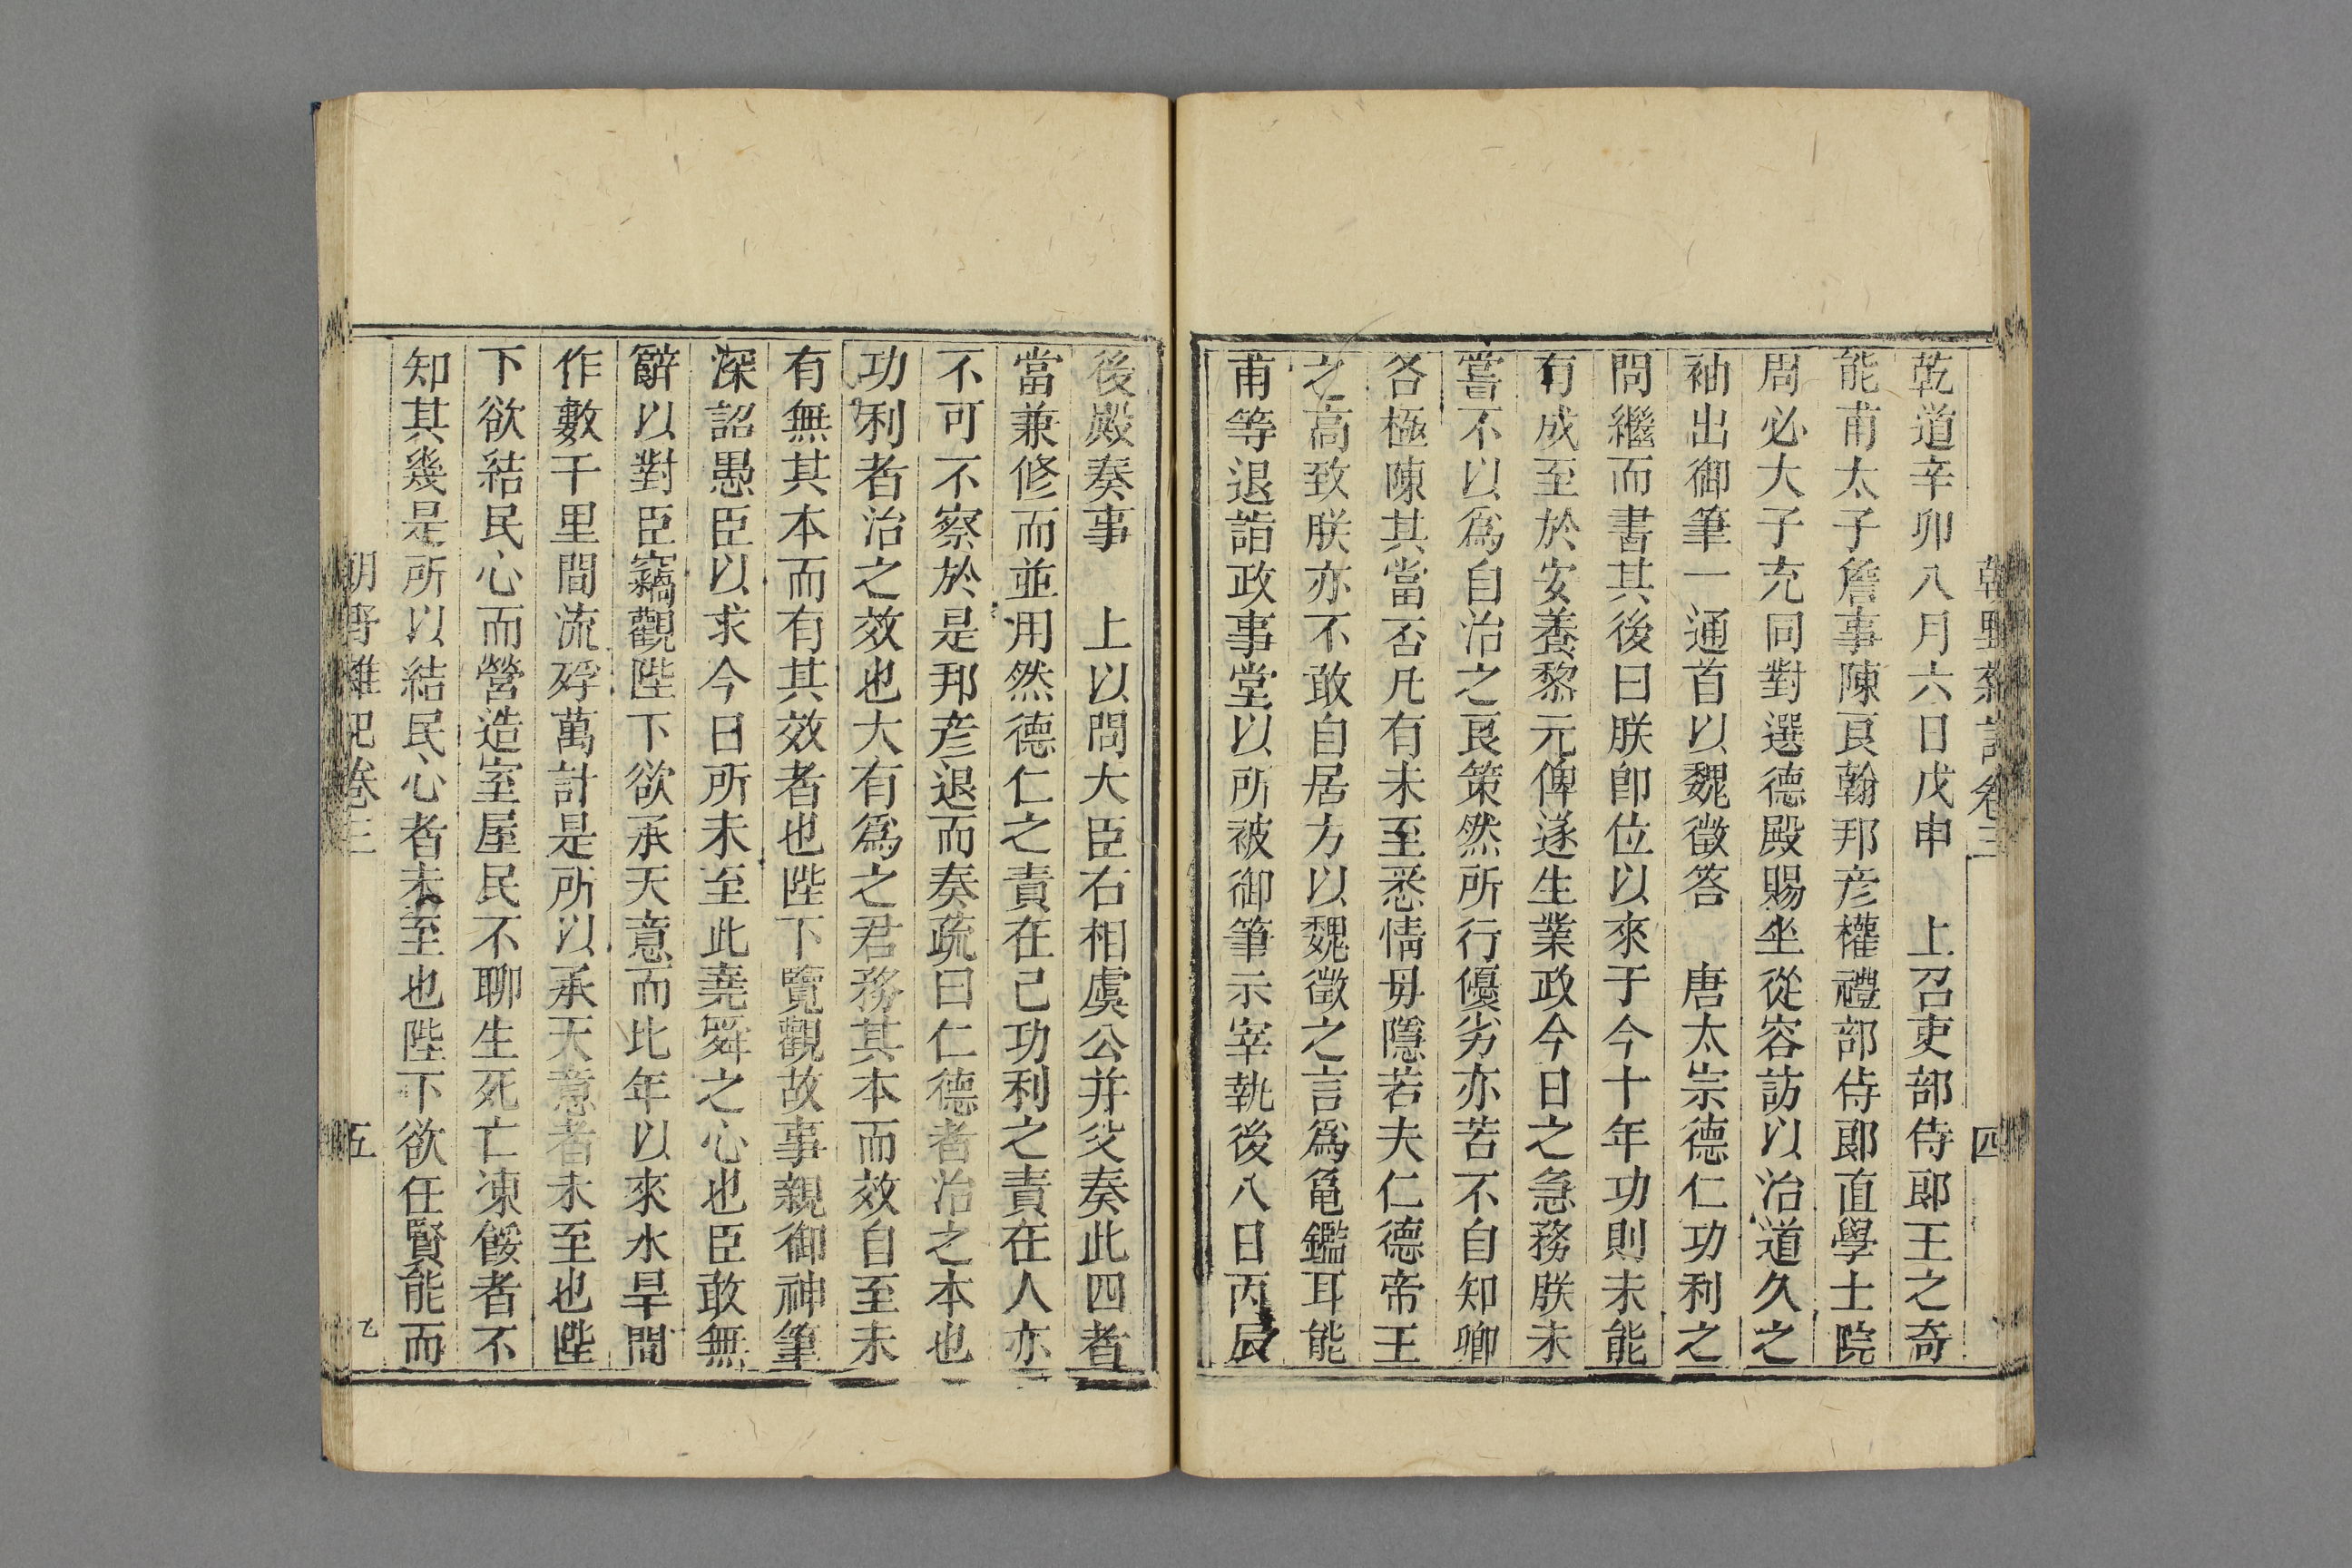 朝野雜記卷三 四
乾道辛卯八月六日戊申 上召吏部侍郎王之奇
能甫太子詹事陳良翰邦彦權禮部侍郎直學士院
周必大子充同對選德殿賜坐從容訪以治道久之
袖出御筆一通首以魏徵答 唐太宗德仁功利之
問繼而書其後曰朕卽位以來于今十年功則未能
有成至於安養黎元俾遂生業政今日之急務朕未
嘗不以爲自治之良策然所行優劣亦苦不自知卿
各極陳其當否凡有未至悉情毋隱若夫仁德帝王
之高致朕亦不敢自居方以魏徵之言爲龜鑑耳能
甫等退詣政事堂以所被御筆示宰執後八日丙辰
後殿奏事 上以問大臣右相虞公并父奏此四者
當兼修而並用然德仁之責在己功利之責在人亦
不可不察於是邦彦退而奏疏曰仁德者治之本也
功利者治之效也大有爲之君務其本而效自至未
有無其本而有其效者也陛下覽觀故事親御神筆
深詔愚臣以求今日所未至此堯舜之心也臣敢無
辭以對臣竊觀陛下欲承天意而比年以來水旱間
作數千里間流殍萬計是所以承天意者未至也陛
下欲結民心而營造室屋民不聊生死亡凍餒者不
知其幾是所以結民心者未至也陛下欲任賢能而
朝野雜記卷三 五 乙